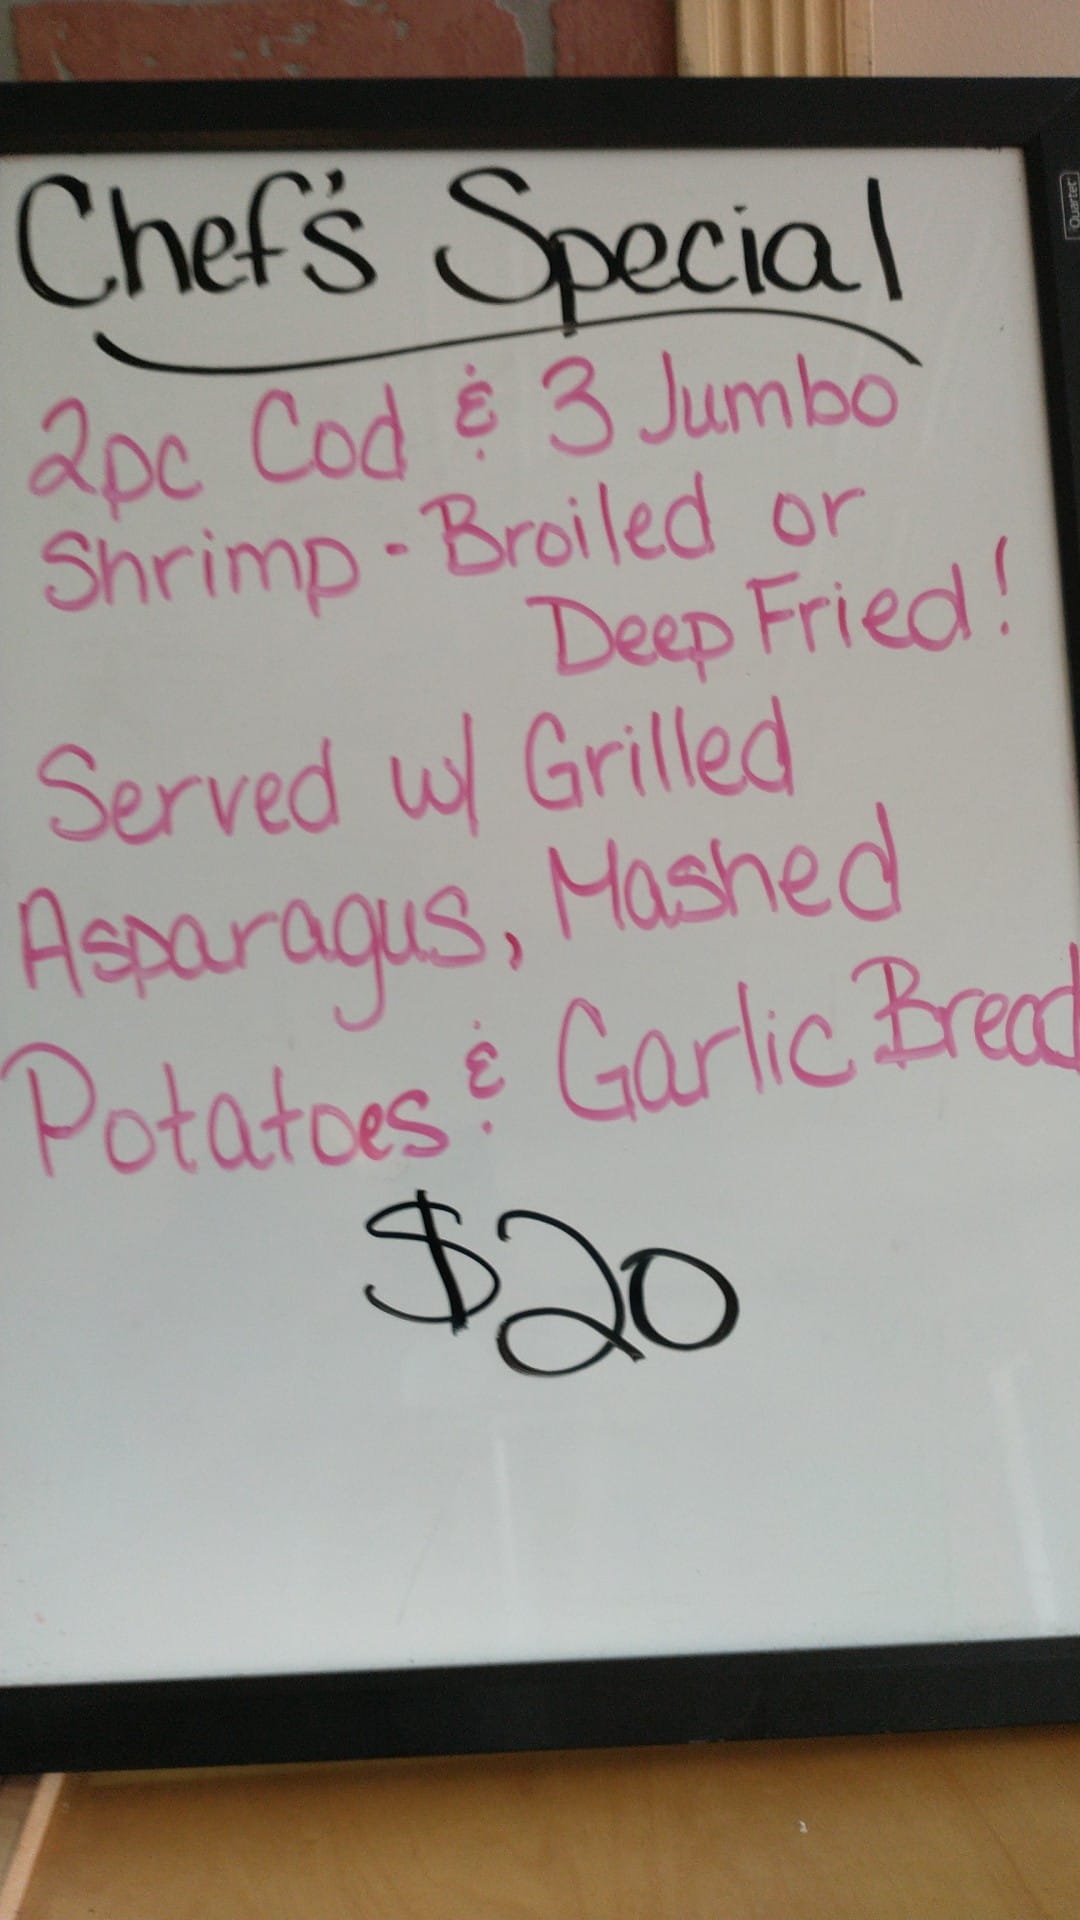 Chef's Special
2pc Cod & 3 Jumbo
Shrimp - Broiled or
Deep Fried!
Served w/ Grilled
Asparagus, Mashed
Potatoes & Garlic Bread
$20
Quartet